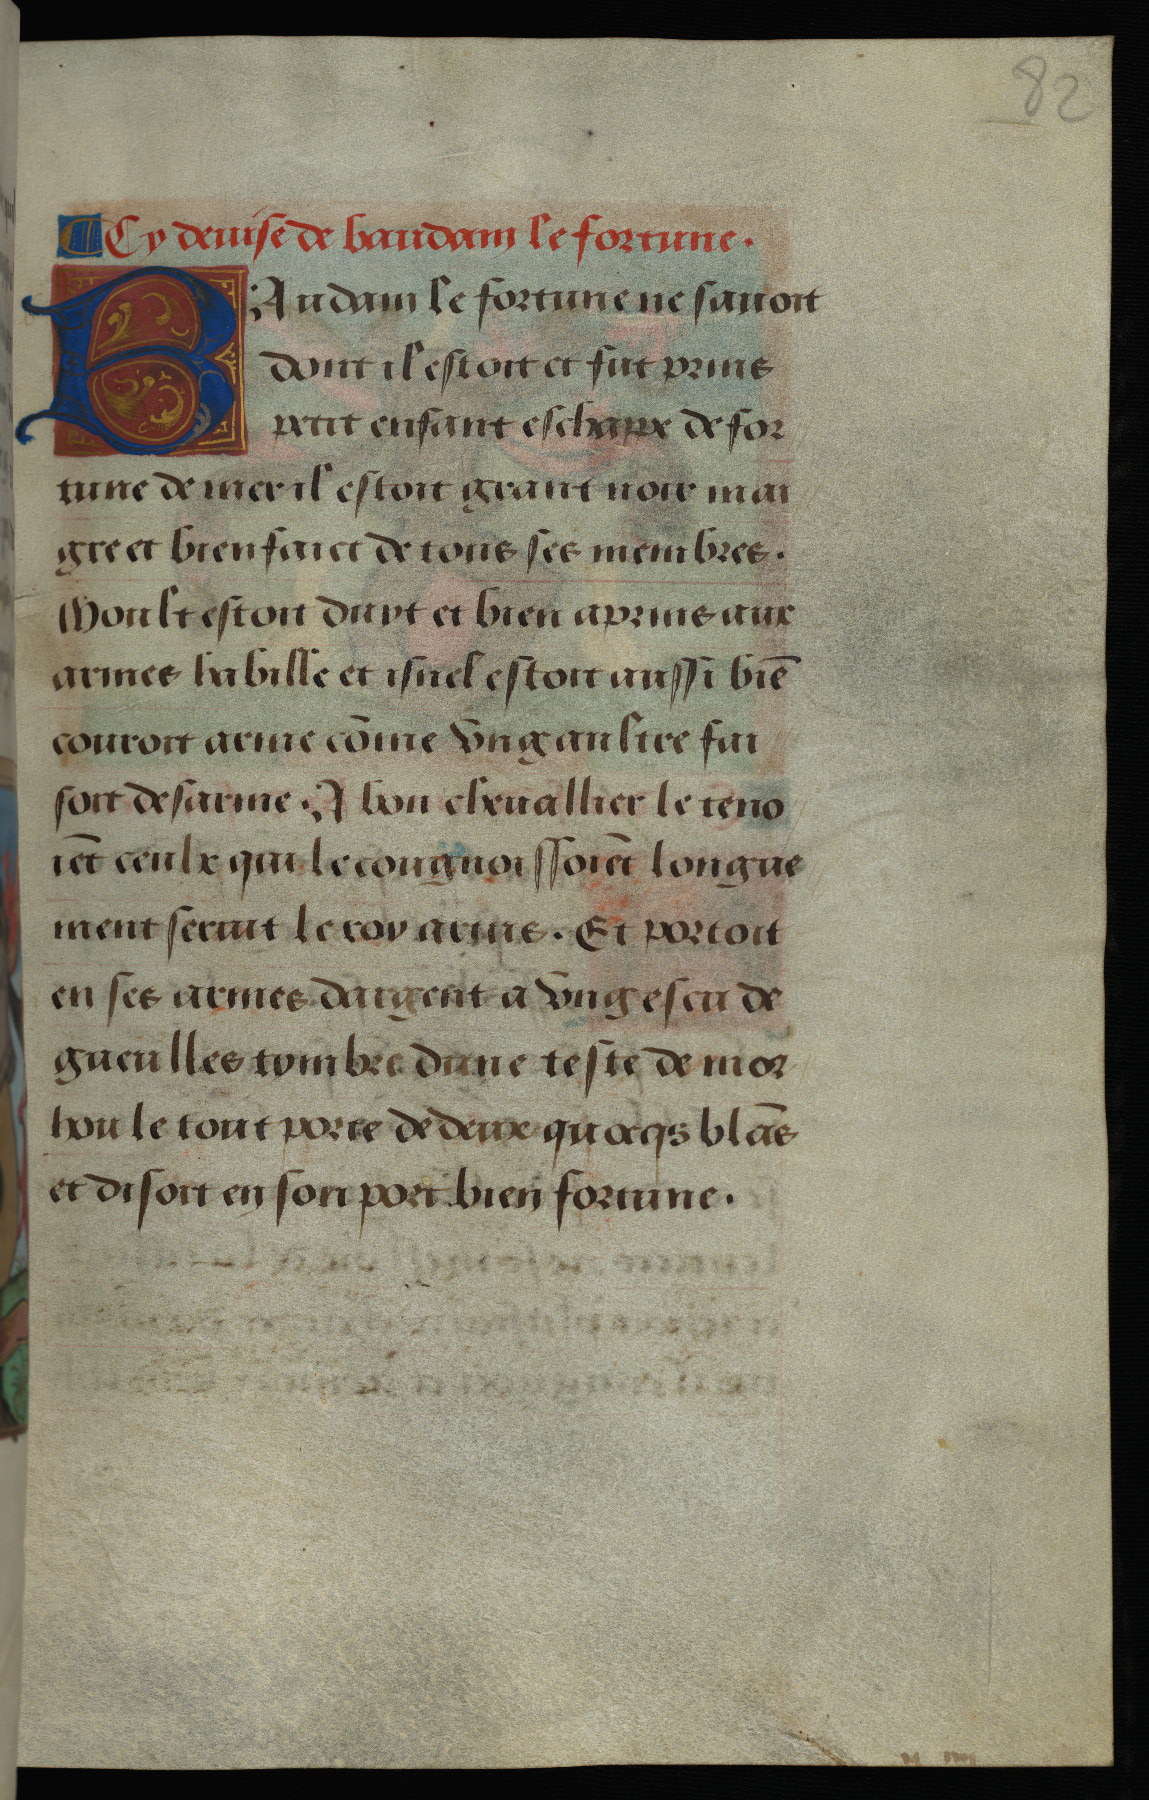 82
Cy deuise de baudam le fortune.
BAudam le fortune ne sauoit
dont il estoit et fut prins
petit enfant eschappe de for
tune de mer il estoit grant noir mai
gre et bien faict de tous ses membres.
Moult estoit duyt et bien aprins aux
armes habille et isnel estoit aussi biē
couroit arme cōme vng aultre fai
soit desarme. A bon cheuallier le teno
iēt ceulx qui le congnoissoiēt longue
ment seruit le roy artus. Et portoit
en ses armes dargent a vng escu de
gueulles tymbre dune teste de mor
hou le tout porte de deux quocqs blāс
et disoit en son port bien fortune.